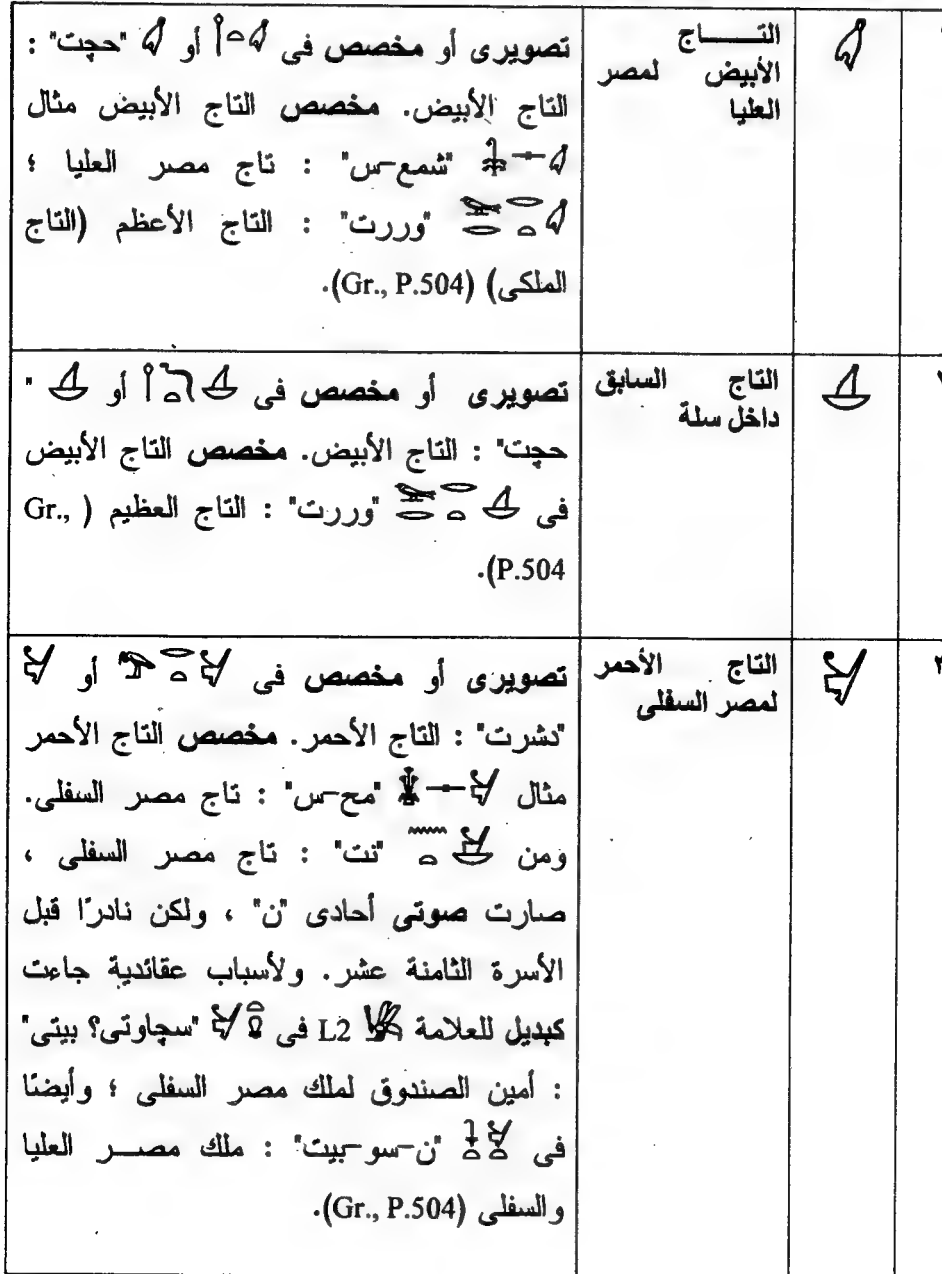 التـــــاج
الأبيض لمصر
العليا
تصويرى أو مخصص فى 𓋑𓏏𓌉 أو 𓋑 "حچت" :
التاج الأبيض. مخصص التاج الأبيض مثال
"شمع-س" : تاج مصر العليا ؛
"وررت" : التاج الأعظم (التاج
الملكى) (Gr., P.504).
التاج السابق
داخل سلة
تصويرى أو مخصص فى أو "
حچت" : التاج الأبيض. مخصص التاج الأبيض
فى "وررت" : التاج العظيم (Gr.,
P.504).
٣
التاج الأحمر
لمصر السفلى
تصويرى أو مخصص فى أو
"دشرت" : التاج الأحمر. مخصص التاج الأحمر
مثال "مح-س" : تاج مصر السفلى.
ومن "نت" : تاج مصر السفلى ،
صارت صوتى أحادى "ن" ، ولكن نادرًا قبل
الأسرة الثامنة عشر. ولأسباب عقائدية جاءت
كبديل للعلامة L2 فى "سچاوتى؟ بيتى"
: أمين الصندوق لملك مصر السفلى ؛ وأيضًا
فى "ن-سو-بيت" : ملك مصـــر العليا
والسفلى (Gr., P.504).